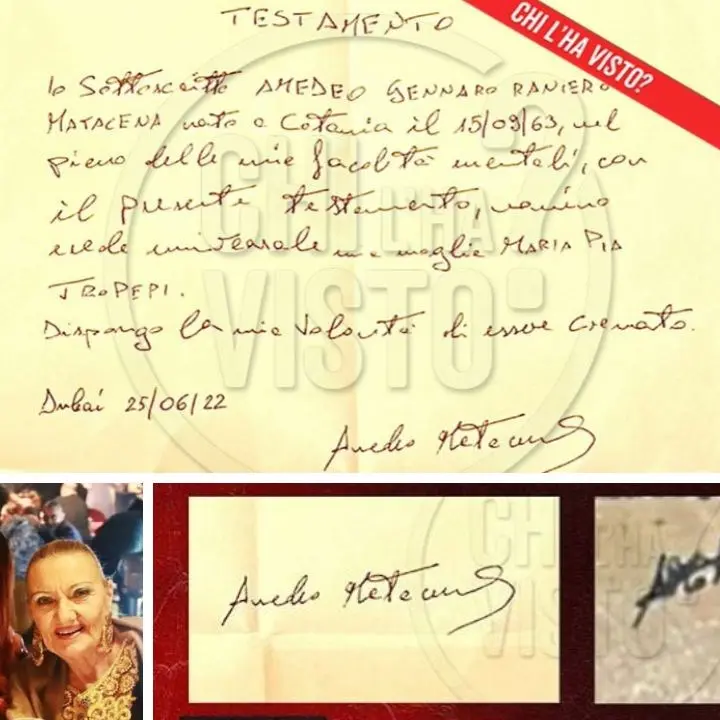 TESTAMENTO
CHI L'HA VISTO?
Io Sottoscritto AMEDEO GENNARO RANIERO
MATACENA nato a Catania il 15/09/63, nel
pieno delle mie facoltà mentali, con
il presente testamento, nomino
erede universale mia moglie MARIA PIA
TROPEPI.
Dispongo la mia volontà di essere cremato.
Dubai 25/06/22
Amedeo Matacena
CHI L'HA
VISTO?
Amedeo Matacena